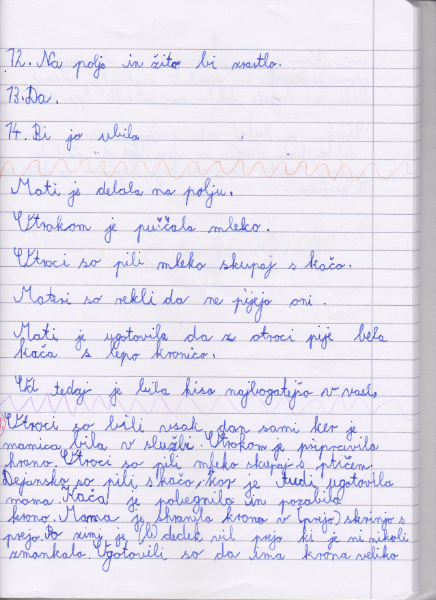 12. Na polje in žito bi zrastlo.
13. Da.
14. Bi jo ubila
Mati je delala na polju.
Otrokom je puščala mleko.
Otroci so pili mleko skupaj s kačo.
Materi so rekli da ne pijejo oni.
Mati je ugotovila da z otroci pije bela
kača s lepo kronico.
Od tedaj je bila hiša najbogatejša v vasi.
Otroci so bili vsak dan sami ker je
mamica bila v službi. Otrokom je pripravila
hrano. Otroci so pili mleko skupaj s ptičem.
Dejansko so pili s kačo, kar je tudi ugotovila
mama. Kača je pobegnila in pozabila
krono. Mama je shranila krono v (prejo) skrinjo s
prejo. Po zimi je (b) dedek vil prejo ki je ni nikoli
zmankalo. Ugotovili so da ima krona veliko